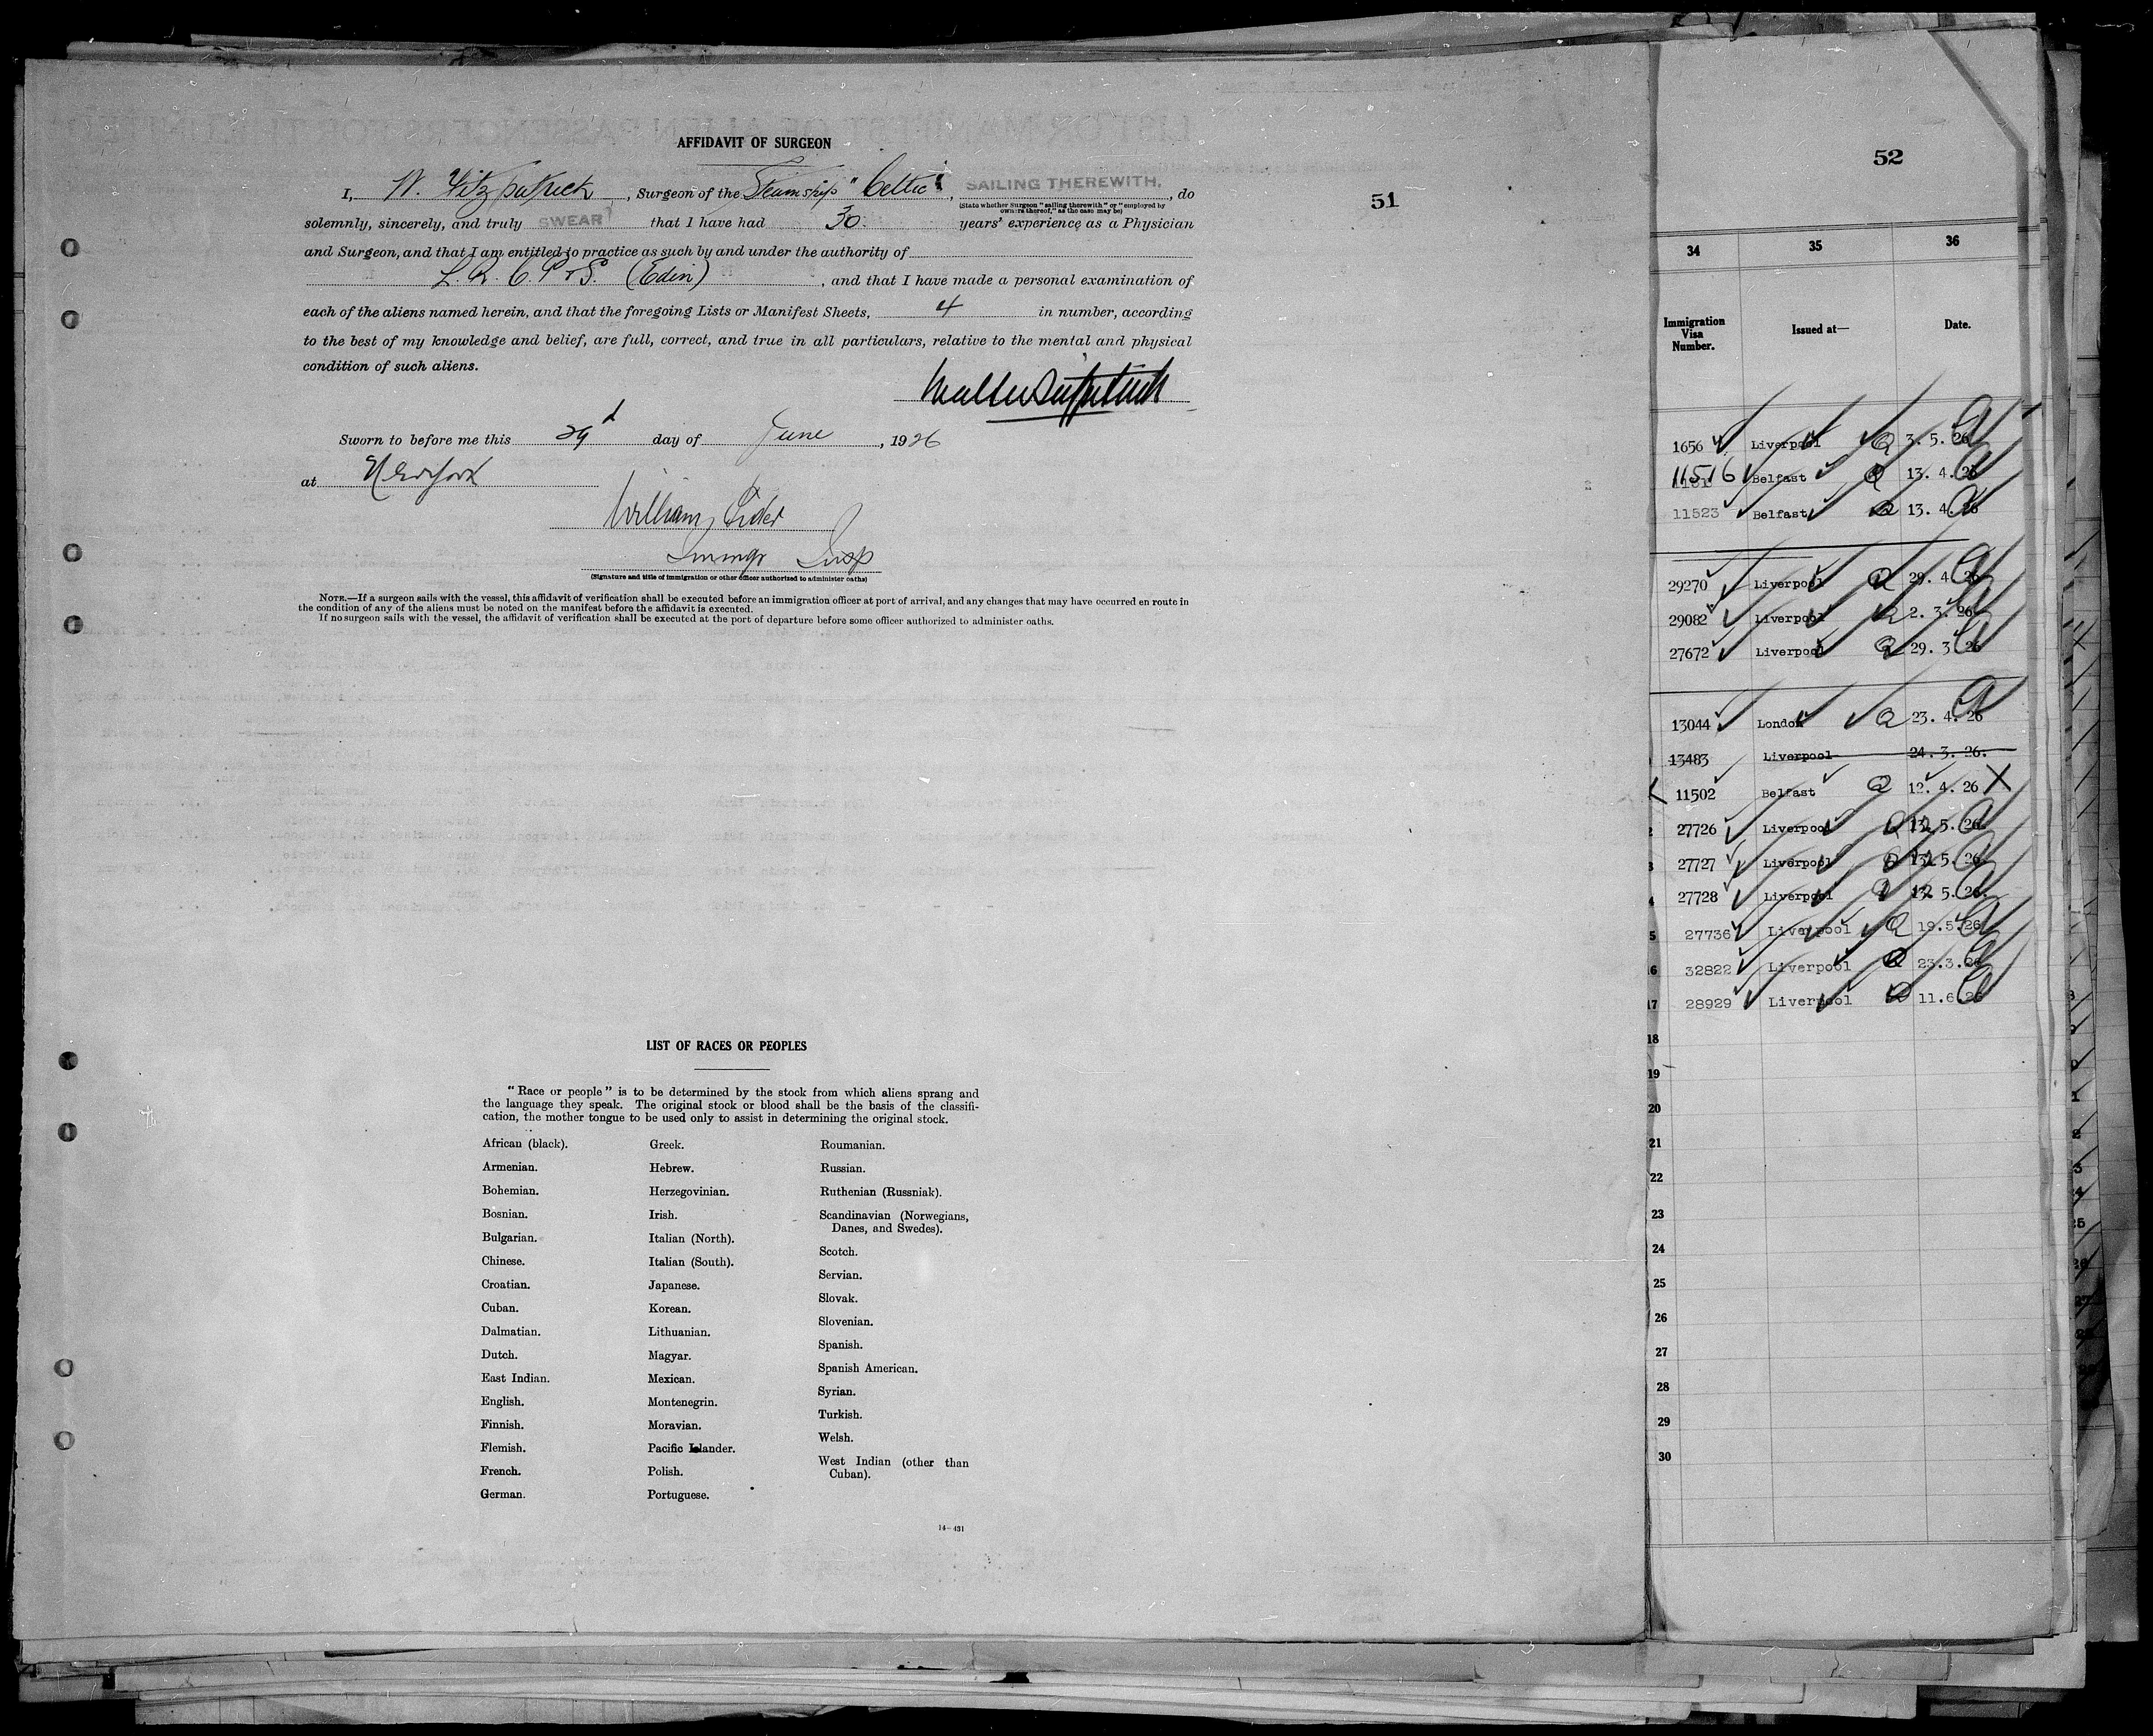 AFFIDAVIT OF SURGEON
I, W. Fitzpatrick, Surgeon of the Steamship "Celtic", SAILING THEREWITH, do
(State whether Surgeon "sailing therewith" or "employed by
owners thereof," as the case may be)
solemnly, sincerely, and truly SWEAR that I have had 30. years' experience as a Physician
and Surgeon, and that I am entitled to practice as such by and under the authority of
L. R. C. P & S. (Edin), and that I have made a personal examination of
each of the aliens named herein, and that the foregoing Lists or Manifest Sheets, 4 in number, according
to the best of my knowledge and belief, are full, correct, and true in all particulars, relative to the mental and physical
condition of such aliens.
Walter Fitzpatrick
Sworn to before me this 29 day of June, 1926
at New York
William
Immgr Insp
(Signature and title of immigration or other officer authorized to administer oaths)
NOTE.—If a surgeon sails with the vessel, this affidavit of verification shall be executed before an immigration officer at port of arrival, and any changes that may have occurred en route in
the condition of any of the aliens must be noted on the manifest before the affidavit is executed.
If no surgeon sails with the vessel, the affidavit of verification shall be executed at the port of departure before some officer authorized to administer oaths.
51
LIST OF RACES OR PEOPLES
"Race or people" is to be determined by the stock from which aliens sprang and
the language they speak. The original stock or blood shall be the basis of the classifi-
cation, the mother tongue to be used only to assist in determining the original stock.
African (black).
Armenian.
Bohemian.
Bosnian.
Bulgarian.
Chinese.
Croatian.
Cuban.
Dalmatian.
Dutch.
East Indian.
English.
Finnish.
Flemish.
French.
German.
Greek.
Hebrew.
Herzegovinian.
Irish.
Italian (North).
Italian (South).
Japanese.
Korean.
Lithuanian.
Magyar.
Mexican.
Montenegrin.
Moravian.
Pacific Islander.
Polish.
Portuguese.
Roumanian.
Russian.
Ruthenian (Russniak).
Scandinavian (Norwegians,
Danes, and Swedes).
Scotch.
Servian.
Slovak.
Slovenian.
Spanish.
Spanish American.
Syrian.
Turkish.
Welsh.
West Indian (other than
Cuban).
14—431
52
34 35 36
Immigration
Visa
Number.
Issued at—
Date.
1656 Liverpool 3. 5. 26
11516 Belfast 13. 4. 26
11523 Belfast 13. 4. 26
29270 Liverpool 29. 4. 26
29082 Liverpool 2. 3. 26
27672 Liverpool 29. 3. 26
13044 London 23. 4. 26
13483 Liverpool 24. 3. 26.
11502 Belfast 12. 4. 26 X
27726 Liverpool 5. 26.
27727 Liverpool 5. 26
27728 Liverpool 5. 26.
27736 Liverpool 19.5.26
32822 Liverpool 23.3.26
28929 Liverpool 11.6.26
18
19
20
21
22
23
24
25
26
27
28
29
30